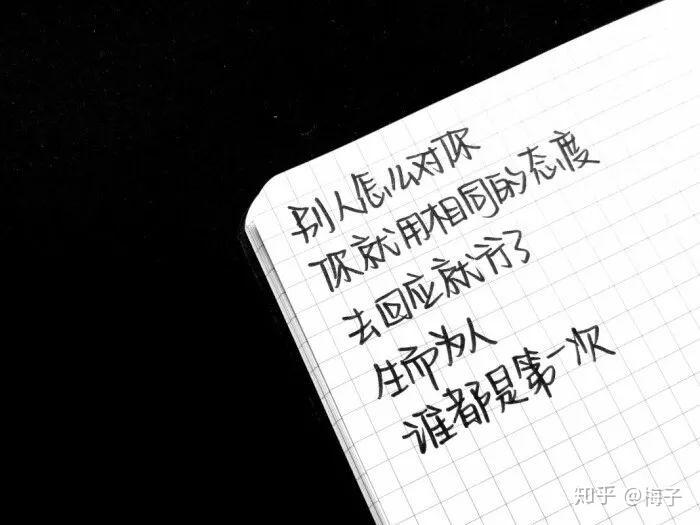 别人怎么对你
你就用相同的态度
去回应就行了
生而为人
谁都是第一次
知乎 @梅子